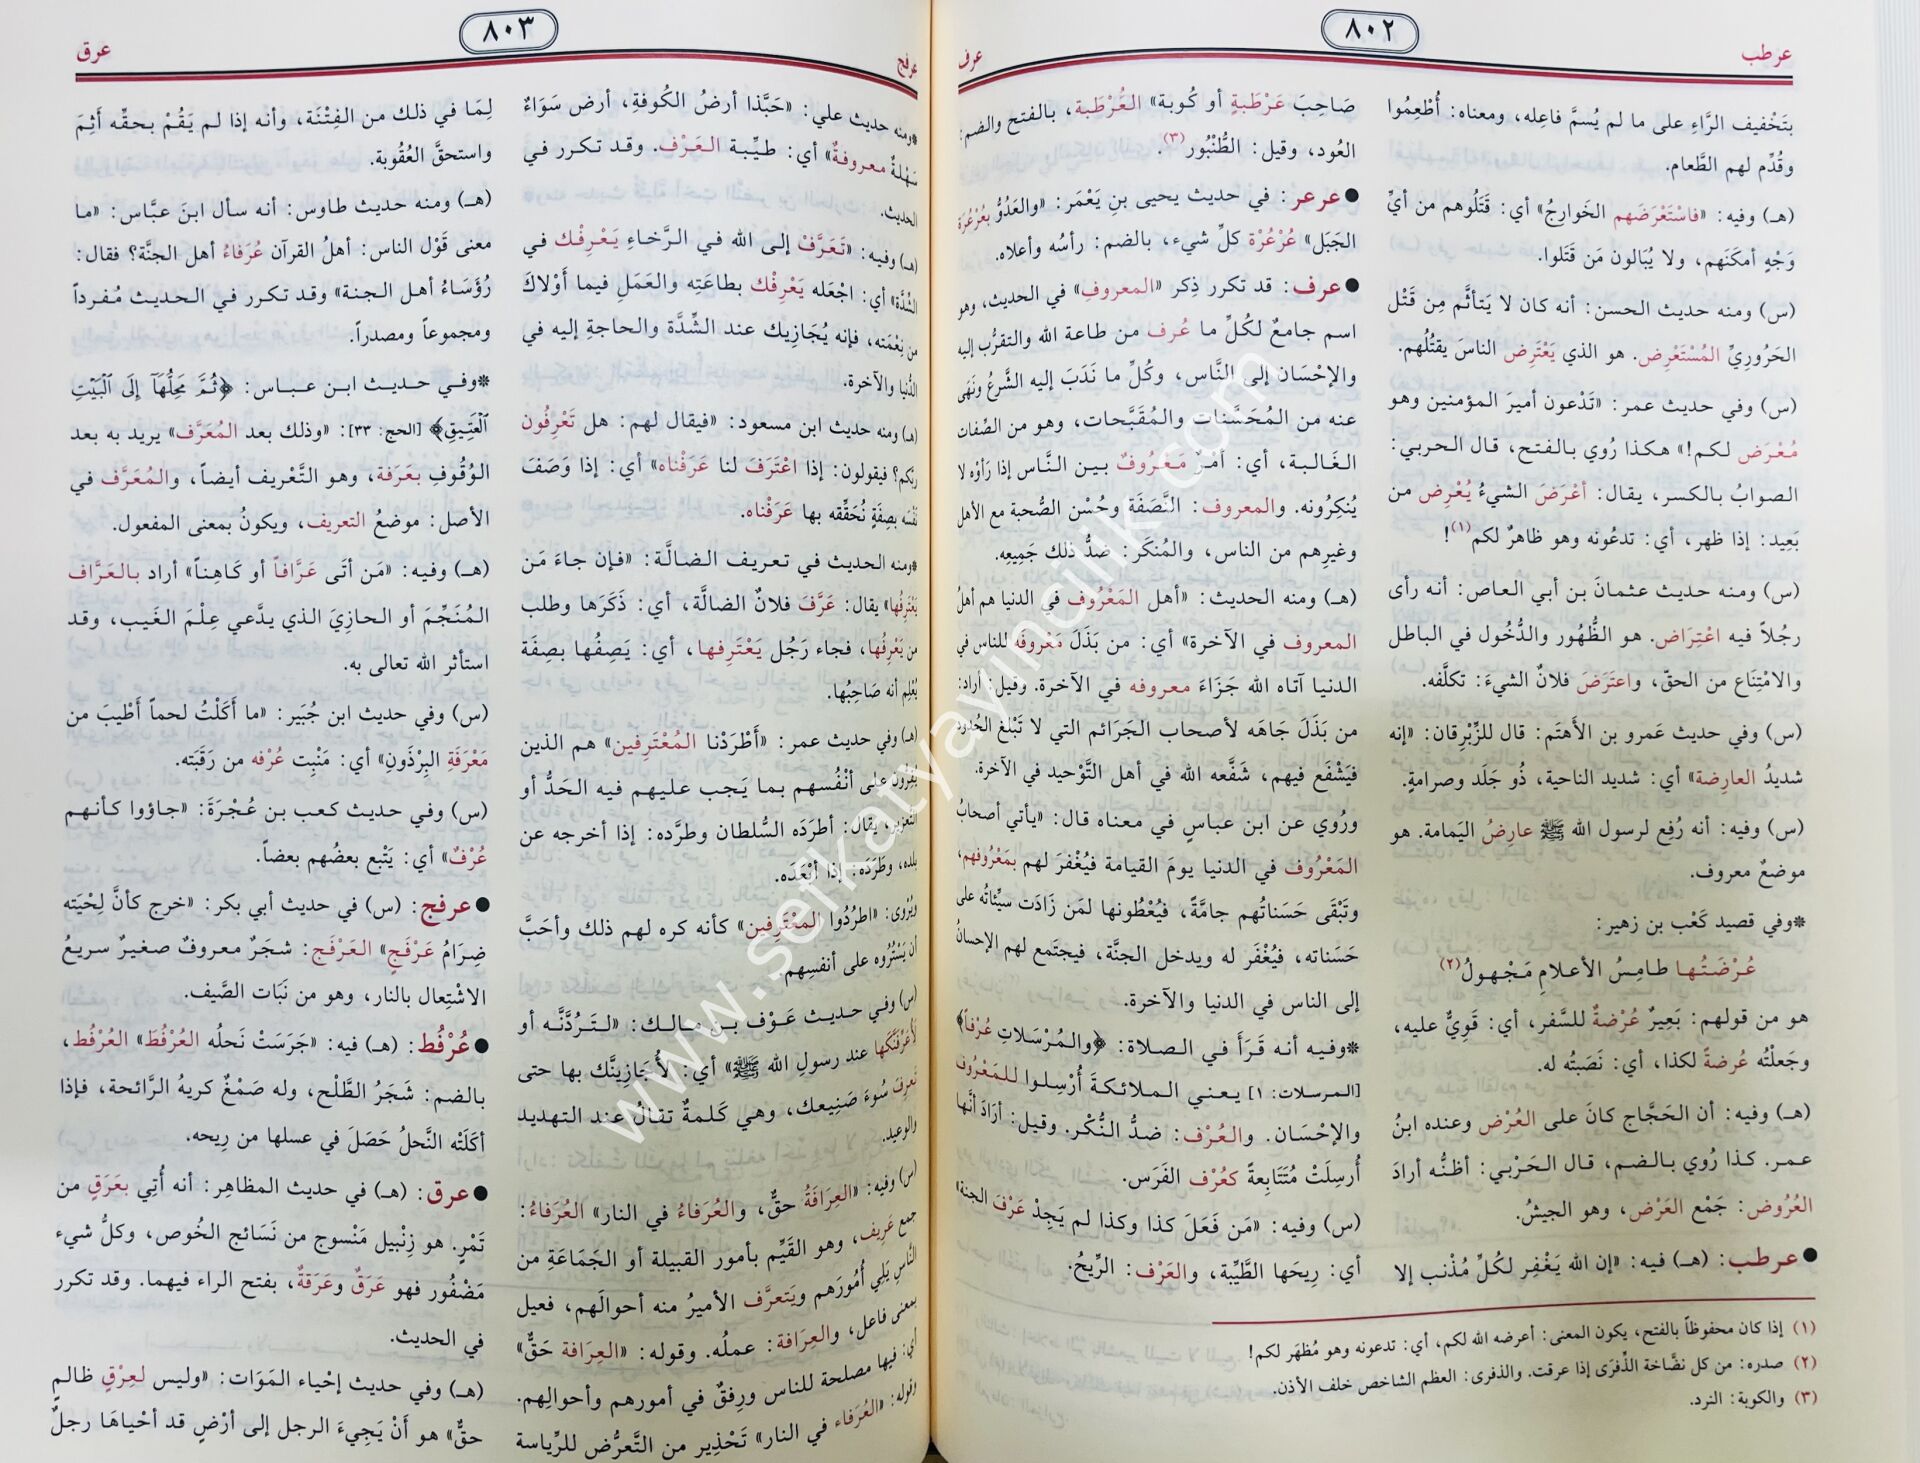 ٨٠٢
عرطب
عرف
بتَخْفيف الرَّاءِ على ما لم يُسمَّ فاعِله، ومعناه: أُطْعِمُوا
وقُدِّم لهم الطَّعام.
(هـ) وفيه: «فاسْتَعْرَضَهم الخَوارِجُ» أي: قَتَلُوهم من أيِّ
وَجْهٍ أمكَنَهم، ولا يُبَالون مَن قَتَلوا.
(س) ومنه حديث الحسن: أنه كان لا يَتأثَّم مِن قَتْل
الحَرُوريِّ المُسْتَعْرِض. هو الذي يَعْتَرِض الناسَ يقتُلُهم.
(س) وفي حديث عمر: «تَدْعون أميرَ المؤمنين وهو
مُعْرَض لكم!» هكذا رُوي بالفتح، قال الحربي:
الصوابُ بالكسر، يقال: أعْرَضَ الشيءُ يُعْرِض من
بَعِيد: إذا ظهر، أي: تدعُونه وهو ظاهرٌ لكم(١)!
(س) ومنه حديث عثمانَ بن أبي العاص: أنه رأى
رجُلاً فيه اعْتِرَاض. هو الظُّهُور والدُّخُول في الباطل
والامْتِنَاع من الحقّ، واعتَرَضَ فلانٌ الشيءَ: تكلَّفه.
(س) وفي حديث عَمرو بن الأَهتَم: قال للزِّبْرِقان: «إنه
شديدُ العارِضة» أي: شديد الناحية، ذُو جَلَد وصرامةٍ.
(س) وفيه: أنه رُفِع لرسول الله ﷺ عارِضُ اليَمامة. هو
موضعٌ معروف.
*وفي قصيد كَعْب بن زهير:
عُرْضَتُها طامِسُ الأعلامِ مَجْهولُ(٢)
هو من قولهم: بَعِيرٌ عُرْضةٌ للسَّفر، أي: قَوِيٌّ عليه،
وجَعلْتُه عُرضةً لكذا، أي: نَصَبْتُه له.
(هـ) وفيه: أن الحَجَّاج كانَ على العُرْض وعنده ابنُ
عمر. كذا رُوي بالضم، قال الحَرْبي: أظنُّه أرادَ
العُرُوض: جَمْع العَرْض، وهو الجيشُ.
● عرطب: (هـ) فيه: «إن الله يَغْفِر لكُلِّ مُذْنب إلا
صَاحِبَ عَرْطَبةٍ أو كُوبة» العُرْطَبة، بالفتح والضم:
العُود، وقيل: الطُّنْبُور(٣).
● عرعر: في حديث يحيى بنِ يَعْمَر: «والعَدُوُّ بعُرْعُرَة
الجَبَل» عُرْعُرْة كلِّ شيء، بالضم: رأسُه وأعلاه.
● عرف: قد تكرر ذِكر «المعروفِ» في الحديث، وهو
اسم جامعٌ لكُلِّ ما عُرف من طاعة الله والتقرُّب إليه
والإحْسَان إلى النَّاس، وكُلِّ ما نَدَبَ إليه الشَّرعُ ونَهَى
عنه من المُحَسَّنات والمُقَبَّحات، وهو من الصِّفات
الغَالبة، أي: أمرٌ مَعْروفٌ بين النَّاس إذا رَأوْه لا
يُنكِرُونه. والمعروف: النَّصَفَة وحُسْن الصُّحبة مع الأهل
وغيرِهم من الناس، والمُنكَر: ضدُّ ذلك جَمِيعِه.
(هـ) ومنه الحديث: «أهل المَعْرُوف في الدنيا هم أهلُ
المعروف في الآخرة» أي: من بَذَلَ مَعْروفَه للناس في
الدنيا آتاه الله جَزَاءَ معروفه في الآخرة. وقيل: أراد:
من بَذَلَ جَاهَه لأصحاب الجَرَائم التي لا تَبْلغ الحُدود
فيَشْفَع فيهم، شَفَّعه الله في أهل التَّوْحيد في الآخرة.
ورُوي عن ابن عباسٍ في معناه قال: «يأتي أصحابُ
المَعْرُوف في الدنيا يومَ القيامة فيُغْفرَ لهم بمَعْرُوفهم،
وتَبْقَى حَسَناتُهم جامَّةً، فيُعْطُونها لمَن زَادَت سيِّئاتُه على
حَسَناته، فيُغْفَر له ويدخل الجنَّة، فيجتَمع لهم الإحسانُ
إلى الناس في الدنيا والآخرة.
*وفيه أنه قَرَأ في الصلاة: ﴿والمُرْسَلاتِ عُرْفاً﴾
[المرسلات: ١] يعني الملائكةَ أُرْسِلوا للمَعْرُوف
والإحْسَان. والعُرْف: ضدُّ النُّكْر. وقيل: أرَادَ أنَّها
أُرسِلَتْ مُتَتَابِعةً كعُرْف الفَرَس.
(س) وفيه: «مَن فَعَلَ كذا وكذا لم يَجِدْ عَرْفَ الجنة»
أي: رِيحَها الطَّيِّبة، والعَرْف: الرِّيحُ.
(١) إذا كان محفوظاً بالفتح، يكون المعنى: أعرضه الله لكم، أي: تدعونه وهو مُظهَر لكم!
(٢) صدره: من كل نضَّاخة الذِّفرَى إذا عرقت. والذفرى: العظم الشاخص خلف الأذن.
(٣) والكوبة: النرد.
٨٠٣
عرفج
عرق
*ومنه حديث علي: «حَبَّذا أرضُ الكُوفةِ، أرض سَوَاءٌ
سَهْلةٌ معروفةٌ» أي: طيِّبة العَرْف. وقد تكرر في
الحديث.
(هـ) وفيه: «تَعَرَّفْ إلى الله في الرَّخاءِ يَعْرِفْك في
الشدَّة» أي: اجْعَله يَعْرِفْك بطاعَتِه والعَمَلِ فيما أوْلاكَ
من نِعْمَته، فإنه يُجَازِيك عند الشِّدَّة والحاجةِ إليه في
الدُّنيا والآخرة.
(هـ) ومنه حديث ابن مسعود: «فيقال لهم: هل تَعْرِفُون
ربَّكم؟ فيقولون: إذا اعْتَرَفَ لنا عَرَفْناه» أي: إذا وَصَفَ
نَفْسَه بصِفَةٍ نُحَقِّقه بها عَرَفْناه.
*ومنه الحديث في تعريف الضالَّة: «فإن جاءَ مَن
يَعْتَرِفُها» يقال: عَرَّفَ فلانٌ الضالَّة، أي: ذَكَرَها وطلب
من يَعْرِفُها، فجاء رَجُل يَعْتَرِفها، أي: يَصِفُها بصِفَة
يُعْلِم أنه صَاحِبُها.
(هـ) وفي حديث عمر: «أَطْرَدْنا المُعْتَرِفين» هم الذين
يُقِرُّون على أنْفُسهم بما يَجب عليهم فيه الحَدُّ أو
التعْزير، يقال: أطرَدَه السُّلطان وطرَّده: إذا أخرجه عن
بلده، وطَرَدَه: إذا أبْعَدَه.
ويُرْوى: «اطرُدُوا المعْتَرِفين» كأنه كره لهم ذلك وأحَبَّ
أن يَسْتُرُوه على أنفسِهم.
(س) وفي حديث عَوْف بن مالك: «لتَرُدَّنَّه أو
لأعَرِّفَنَّكَها عند رسولِ الله ﷺ» أي: لأُجَازِيَنَّك بها حتى
تَعرِفَ سُوءَ صَنِيعك، وهي كَلمةٌ تقالُ عند التهديد
والوعيد.
(س) وفيه: «العِرَافَةُ حقٌّ، والعُرفاءُ في النار» العُرَفاءُ:
جمع عَرِيف، وهو القَيِّم بأمور القبيلة أو الجَمَاعَةِ من
النَّاسِ يَلِي أُمُورَهم ويَتعرَّف الأميرُ منه أحوالَهم، فعيل
بمعنى فاعل، والعِرَافة: عملُه. وقوله: «العِرَافة حَقٌّ»
أي: فيها مصلحة للناس ورِفقٌ في أمورهم وأحوالِهم.
وقوله: «العُرَفاء في النار» تَحْذِير من التَّعرُّض للرِّياسة
لِمَا في ذلك من الفِتْنَة، وأنه إذا لم يَقُمْ بحقّه أَثِمَ
واستحقَّ العُقُوبة.
(هـ) ومنه حديث طاوس: أنه سأل ابنَ عبَّاس: «ما
معنى قَوْل الناس: أهلُ القرآن عُرَفاءُ أهل الجنَّة؟ فقال:
رُؤَسَاءُ أهلِ الجنة» وقد تكرر في الحديث مُفرداً
ومجموعاً ومصدراً.
*وفي حديث ابن عباس: ﴿ثُمَّ مَحِلُّهَآ إِلَى ٱلْبَيْتِ
ٱلْعَتِيقِ﴾ [الحج: ٣٣]: «وذلك بعد المُعَرَّف» يريد به بعد
الوُقُوفِ بعَرَفة، وهو التَّعْريف أيضاً، والمُعَرَّف في
الأصل: موضعُ التعريف، ويكونُ بمعنى المفعول.
(هـ) وفيه: «مَن أتَى عَرَّافاً أو كَاهِناً» أراد بالعَرَّاف
المُنَجِّمَ أو الحازِيَ الذي يدَّعي عِلْمَ الغَيب، وقد
استأثر الله تعالى به.
(س) وفي حديث ابن جُبَير: «ما أَكَلْتُ لحماً أطْيبَ من
مَعْرَفَةِ البِرْذَون» أي: مَنْبِت عُرْفه من رَقَبَته.
(س) وفي حديث كعب بن عُجْرَةَ: «جاؤوا كأنهم
عُرْفٌ» أي: يَتْبع بعضُهم بعضاً.
● عرفج: (س) في حديث أبي بكر: «خرج كأنَّ لِحْيَته
ضِرَامُ عَرْفَجٍ» العَرْفَج: شجَرٌ معروفٌ صغيرٌ سريعُ
الاشْتِعال بالنار، وهو من نَبَات الصَّيف.
● عُرْفُط: (هـ) فيه: «جَرَسَتْ نَحلُه العُرْفُطَ» العُرْفُط،
بالضم: شَجَرُ الطَّلْح، وله صَمْغٌ كريهُ الرَّائحة، فإذا
أكَلَتْه النَّحلُ حَصَلَ في عسلها من رِيحه.
● عرق: (هـ) في حديث المظاهِر: أنه أُتِي بعَرَقٍ من
تَمْرٍ. هو زِنْبيل مَنْسوج من نَسَائج الخُوص، وكلُّ شيء
مَضْفُور فهو عَرَقٌ وعَرَقةٌ، بفتح الراء فيهما. وقد تكرر
في الحديث.
(هـ) وفي حديث إحْياء المَوَات: «وليس لعِرْقٍ ظالمٍ
حقٌّ» هو أنْ يَجِيءَ الرجل إلى أرْضٍ قد أحْياهَا رجلٌ
www.sefkatyayincilik.com